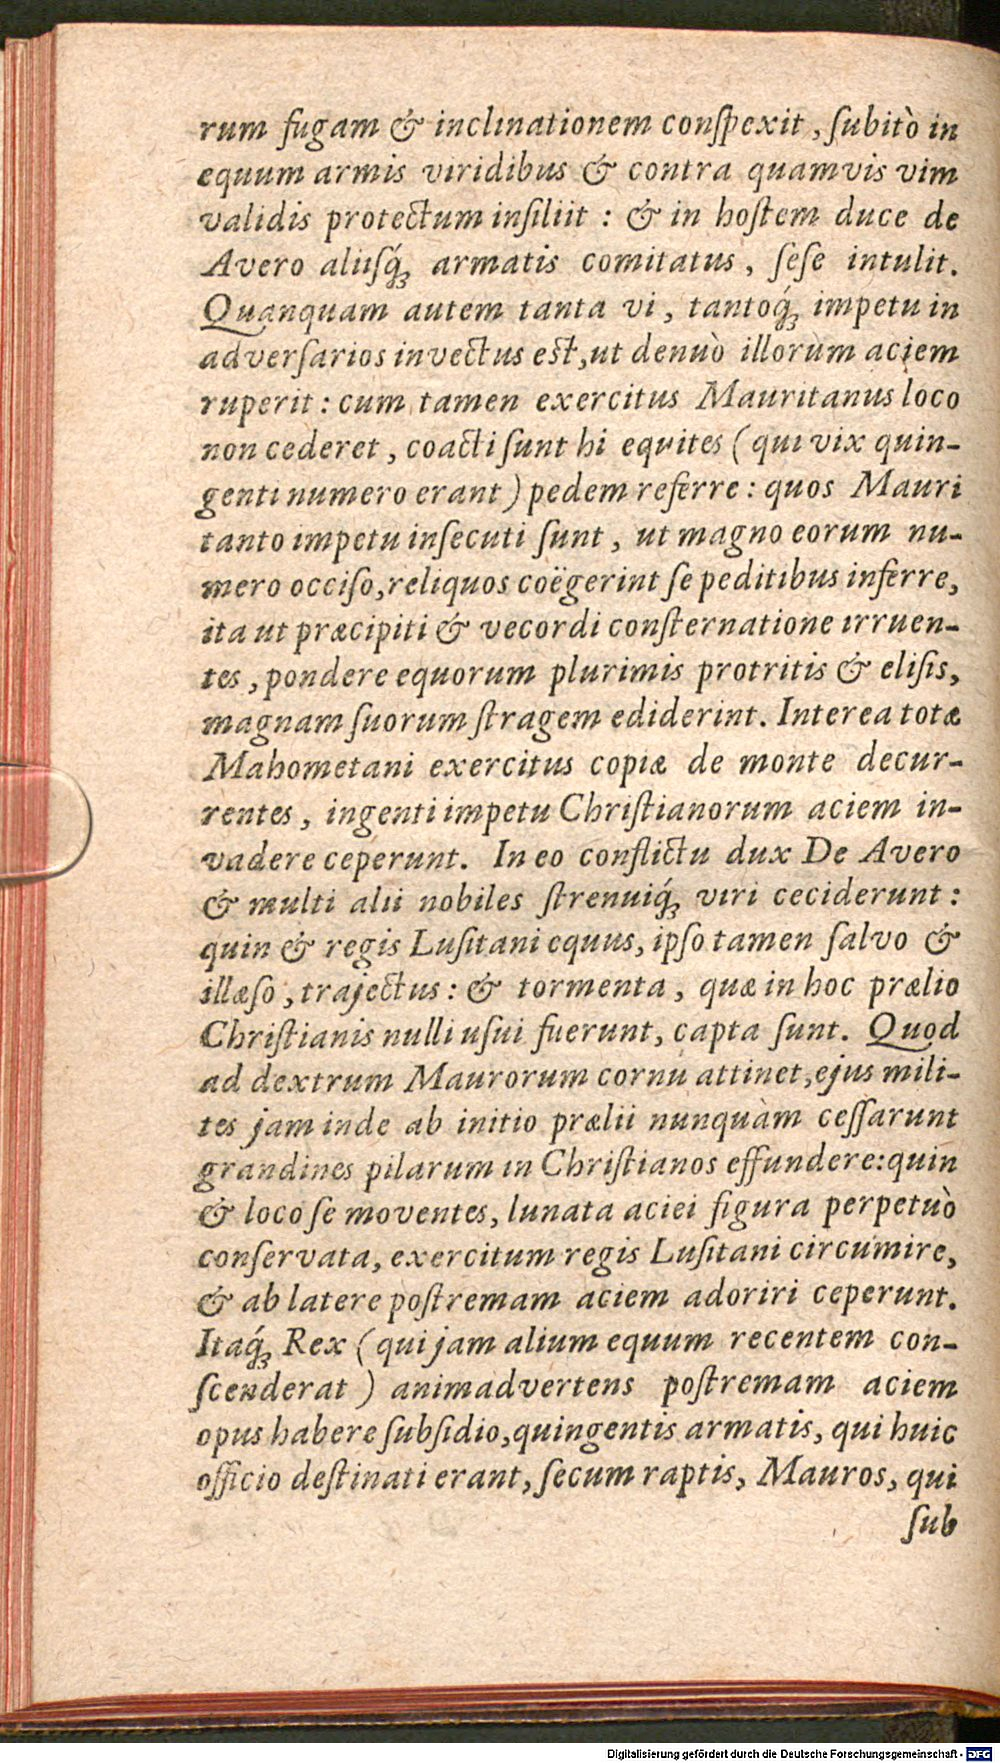 rum fugam & inclinationem conſpexit, ſubitò in
equum armis viridibus & contra quamvis vim
validis protectum inſiliit : & in hoſtem duce de
Avero aliisq́ꝫ armatis comitatus, ſeſe intulit.
Quanquam autem tanta vi, tantoq́ꝫ impetu in
adverſarios invectus eſt, ut denuò illorum aciem
ruperit : cum tamen exercitus Mauritanus loco
non cederet, coacti ſunt hi equites (qui vix quin-
genti numero erant) pedem referre : quos Mauri
tanto impetu inſecuti ſunt, ut magno eorum nu-
mero occiſo, reliquos coëgerint ſe peditibus inferre,
ita ut præcipiti & vecordi conſternatione irruen-
tes, pondere equorum plurimis protritis & eliſis,
magnam ſuorum ſtragem ediderint. Interea totæ
Mahometani exercitus copiæ de monte decur-
rentes, ingenti impetu Chriſtianorum aciem in-
vadere ceperunt. In eo conflictu dux De Avero
& multi alii nobiles ſtrenuiq́ꝫ viri ceciderunt :
quin & regis Luſitani equus, ipſo tamen ſalvo &
illæſo, trajectus : & tormenta, quæ in hoc prælio
Chriſtianis nulli uſui fuerunt, capta ſunt. Quod
ad dextrum Maurorum cornu attinet, ejus mili-
tes jam inde ab initio prælii nunquàm ceſſarunt
grandines pilarum in Chriſtianos effundere: quin
& loco ſe moventes, lunata aciei figura perpetuò
conſervata, exercitum regis Luſitani circumire,
& ab latere poſtremam aciem adoriri ceperunt.
Itaq́ꝫ Rex (qui jam alium equum recentem con-
ſcenderat) animadvertens poſtremam aciem
opus habere ſubſidio, quingentis armatis, qui huic
officio deſtinati erant, ſecum raptis, Mauros, qui
ſub
Digitalisierung gefördert durch die Deutsche Forschungsgemeinschaft - DFG